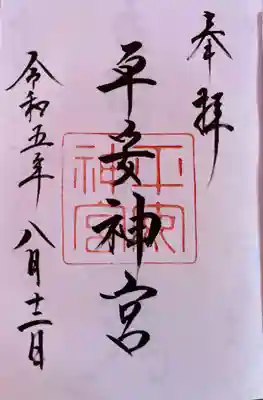 奉拝
平安神宮
平安
神宮
令和五年 八月十二日